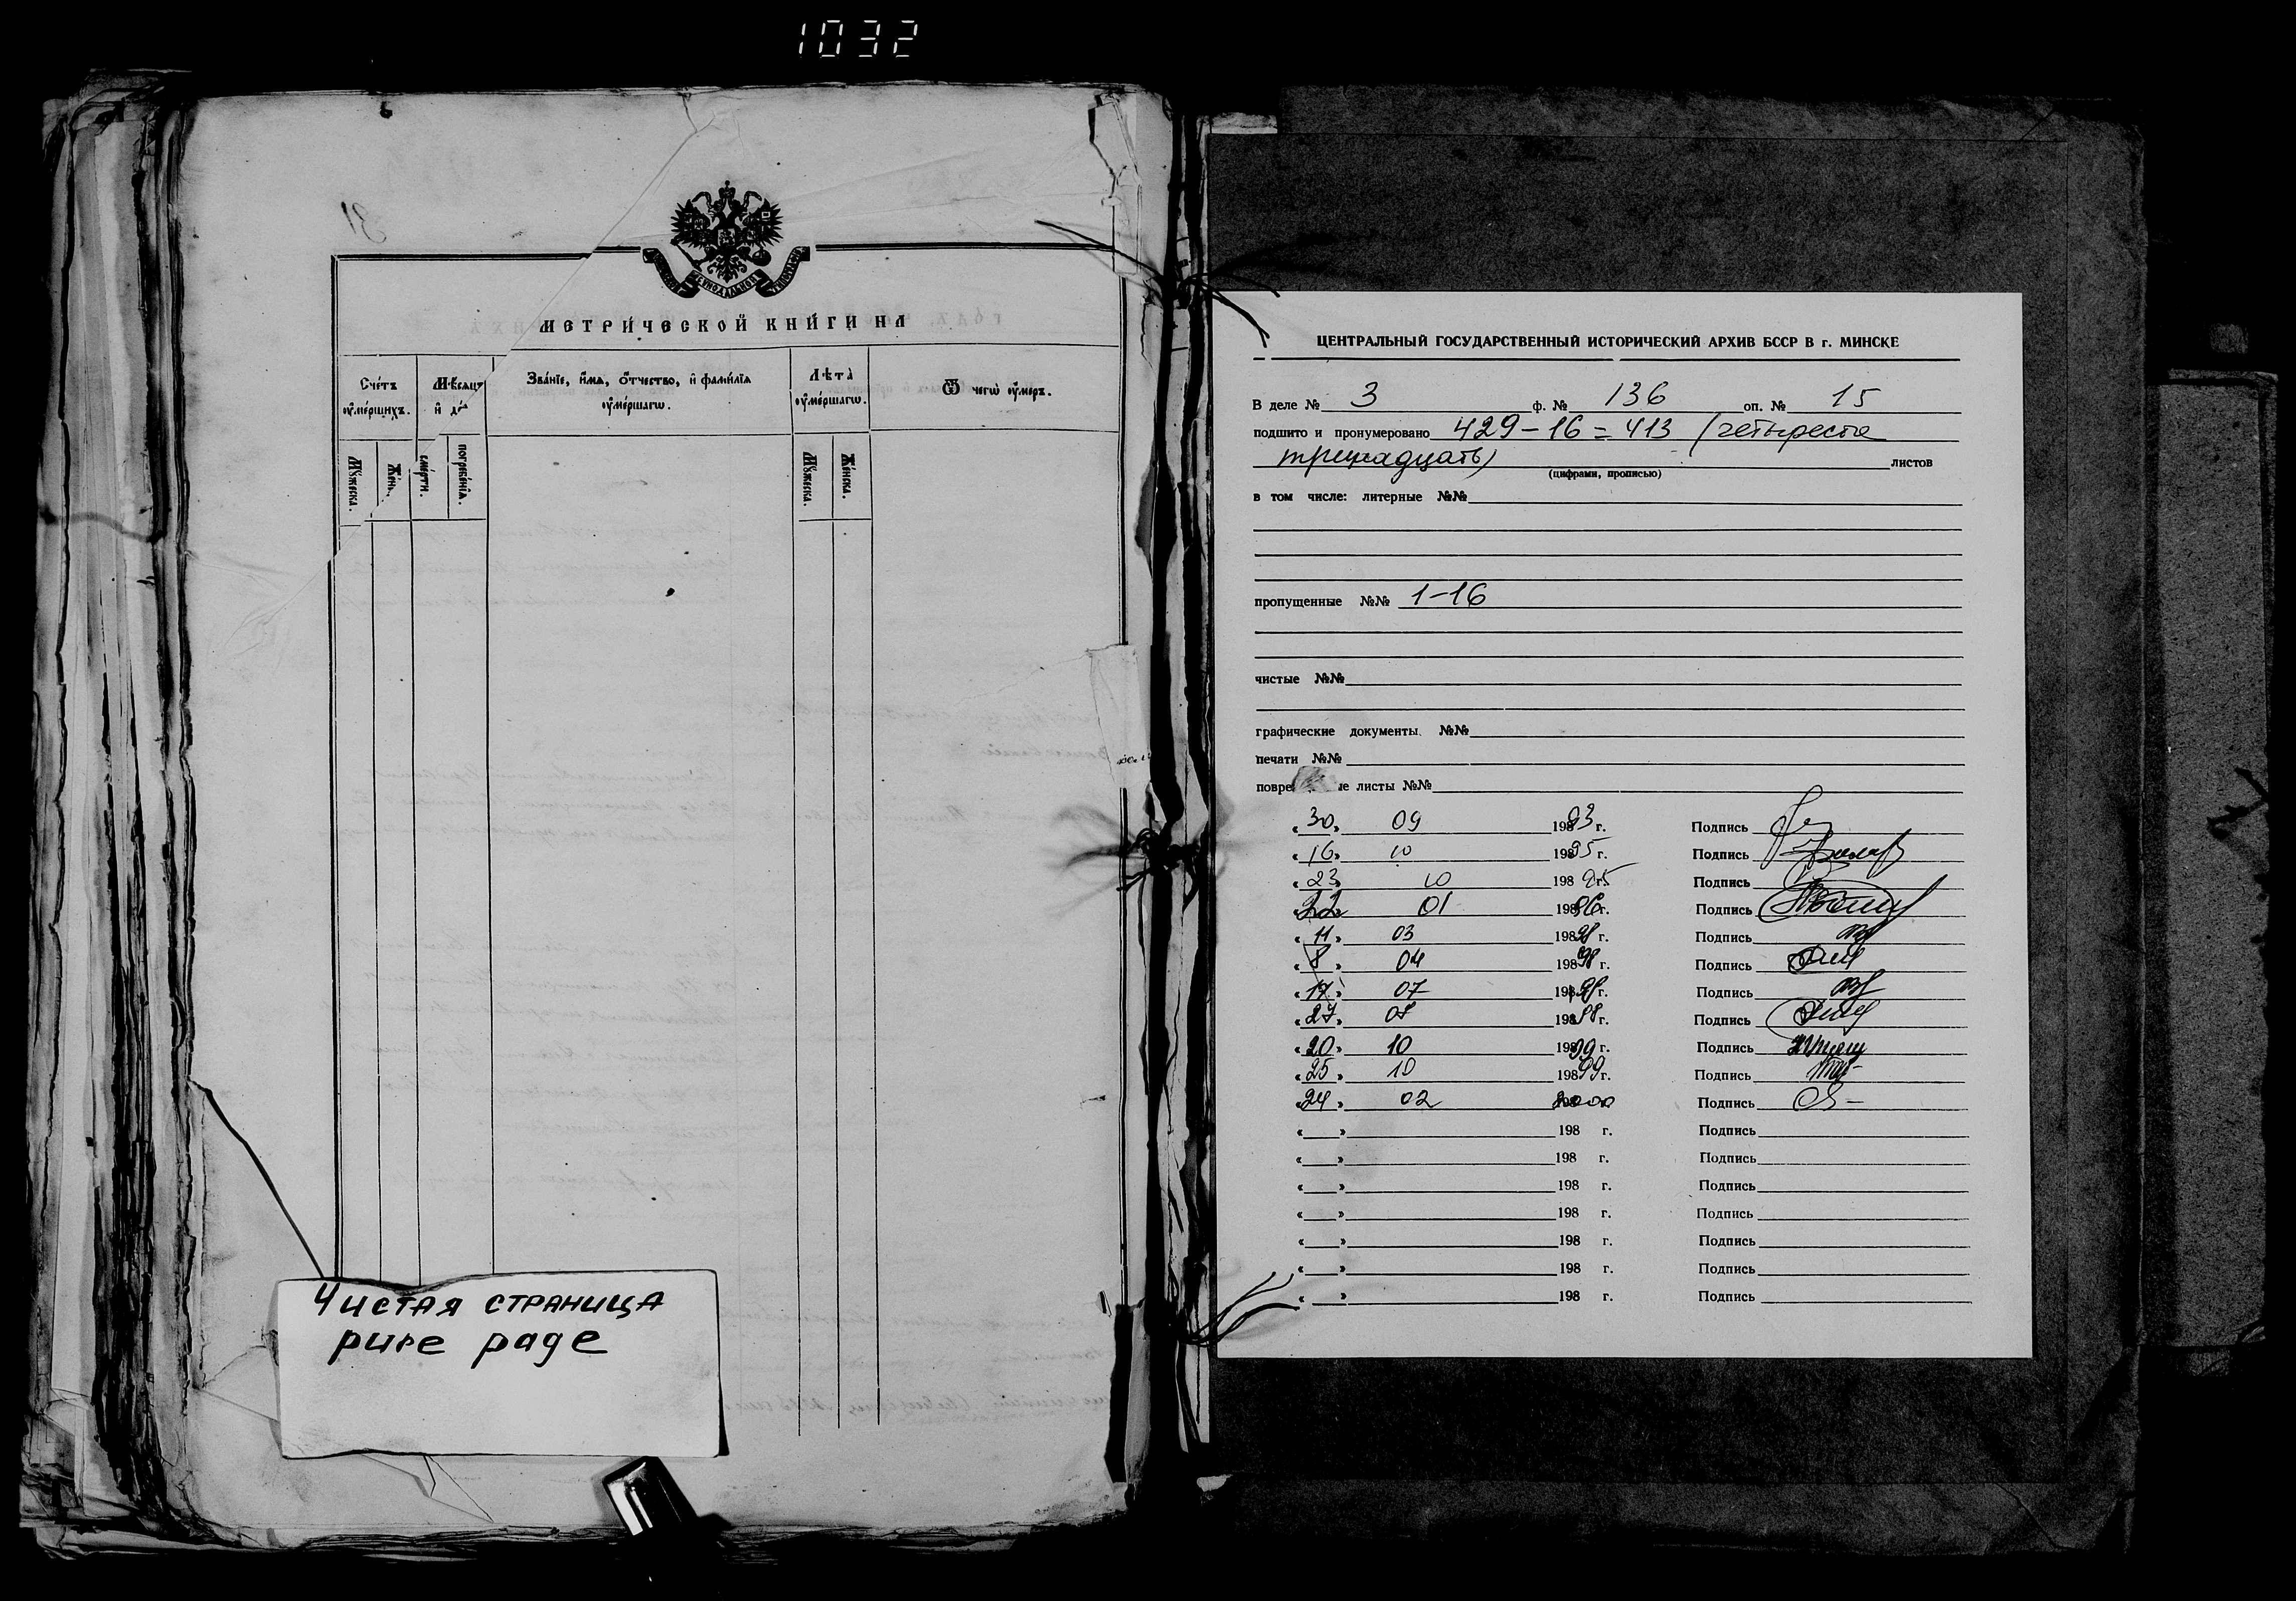 1032
31
СѴНОДАЛЬНОЙ
МЕТРИ́ЧЕСКОЙ КНИ́ГИ НА
Сче́тъ оу҆ме́ршихъ.
Мѣ́сяцъ и҆ де́
Зва́нїе, и҆́мѧ, ѻ҆́тчество, и҆ фами́лїѧ оу҆ме́ршагѡ.
Лѣ́та оу҆ме́ршагѡ.
Ѿ чегѡ̀ оу҆́меръ.
Мꙋ́жеска.
Же́нс.
сме́рти.
погребе́нїѧ.
Мꙋ́жеска.
Же́нска.
Чистая страница
pure page
ЦЕНТРАЛЬНЫЙ ГОСУДАРСТВЕННЫЙ ИСТОРИЧЕСКИЙ АРХИВ БССР В г. МИНСКЕ
В деле № 3 ф. № 136 оп. № 15
подшито и пронумеровано 429-16=413 (четыреста
тринадцать) листов
(цифрами, прописью)
в том числе: литерные №№
пропущенные №№ 1-16
чистые №№
графические документы №№
печати №№
повре ые листы №№
«30» 09 19893 г. Подпись
«16» 10 19895 г. Подпись
«23» 10 198 95 г. Подпись
«22» 01 19896 г. Подпись
«11» 03 19898 г. Подпись
«8» 04 19898 г. Подпись
«17» 07 19898 г. Подпись
«27» 07 19898 г. Подпись
«20» 10 19899 г. Подпись
«25» 10 19899 г. Подпись
«24» 02 2000 Подпись
« » 198 г. Подпись
« » 198 г. Подпись
« » 198 г. Подпись
« » 198 г. Подпись
« » 198 г. Подпись
« » 198 г. Подпись
« » 198 г. Подпись